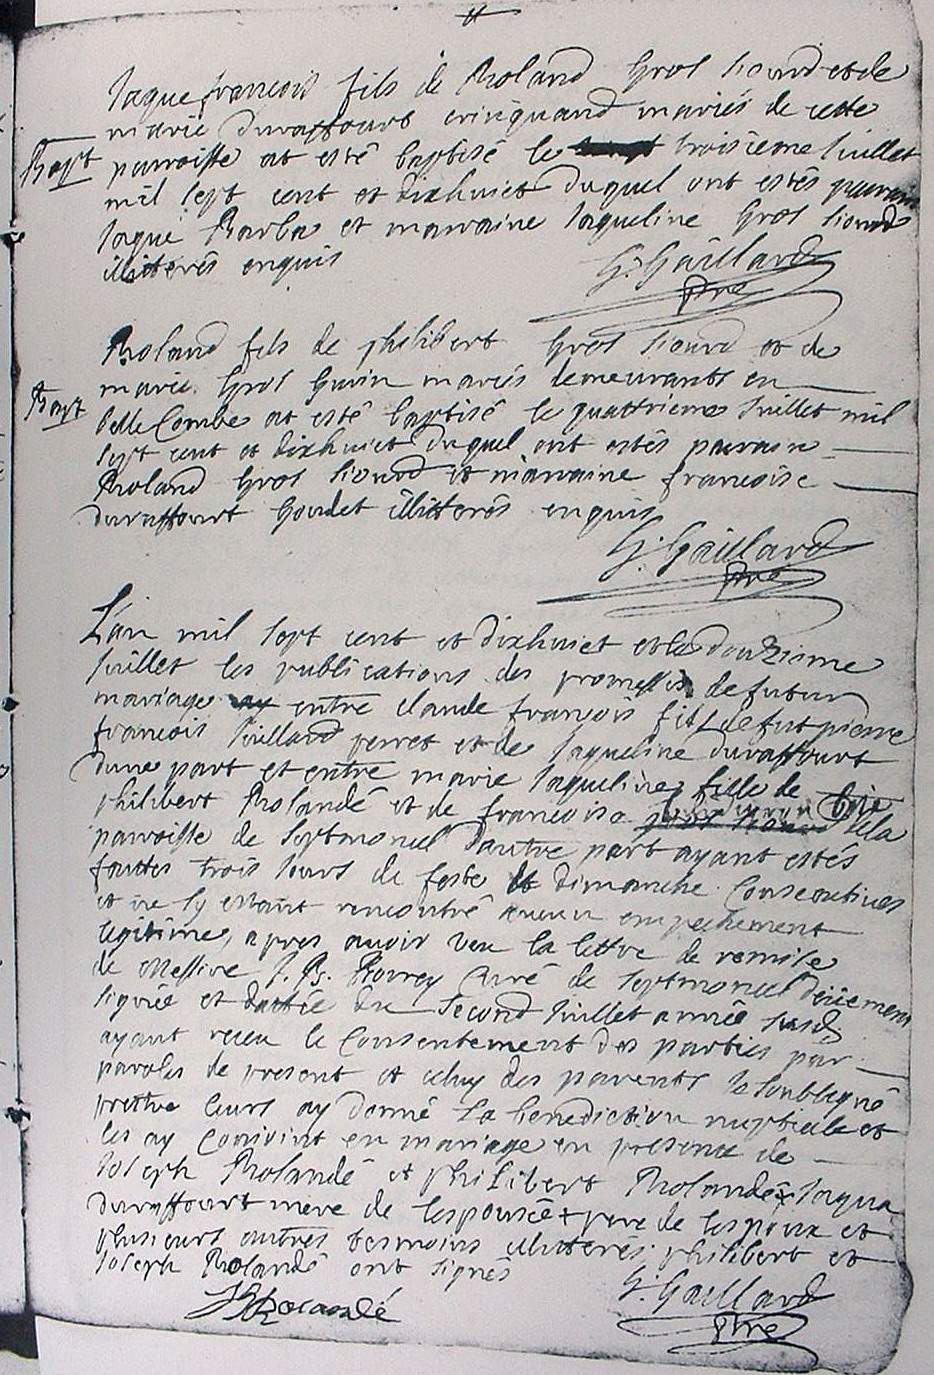 Jaque francois fils de Roland Gros Siourd et de
marie Duraffourt cinquand mariés de cette
Bapt
parroisse at esté baptisé le troisieme Juillet
mil sept cent et dixhuict duquel ont estés parrain
Jaque Barba et marraine Jaqueline Gros Siourd
illitterés enquis
G: Gaillard
Ptre
Roland fils de philibert Gros Siourd et de
marie Gros Gurin mariés demeurants en
Bapt
belle Combe at esté baptisé le quattrieme Juillet mil
sept cent et dixhuict duquel ont estés parrain
Roland Gros Siourd et marraine francoise
duraffourt Goudet illitterés enquis
G: Gaillard
Ptre
L'an mil sept cent et dixhuict et le douzieme
Juillet les publications des promesses de futur
mariage entre claude francois fils de fut pierre
francois Juillard perret et de Jaqueline duraffourt
dune part et entre marie Jaqueline fille de
philibert Rolandé et de francoise de la
parroisse de Septmoncel dautre part ayant estés
faittes trois Jours de feste et dimanche Consecutives
et ne sy estant rencontré aucun empechement
legitime, apres avoir veu la lettre de remise
de Messire J. B. Curé de Septmoncel deüement
signée et dattée du Second Juillet année susd
ayant receu le Consentement des parties par
paroles de present et celuy des parents le soubsigné
prettre leurs ay donné la benediction nuptiale et
les ay conioint en mariage en presence de
Joseph Rolandé et philibert Rolandé Jaqua
duraffourt mere de lespousée + pere de lespoux et
plusieurs autres tesmoins illitterés philibert et
Joseph Rolandé ont signés
G: Gaillard
Rolandé
Ptre